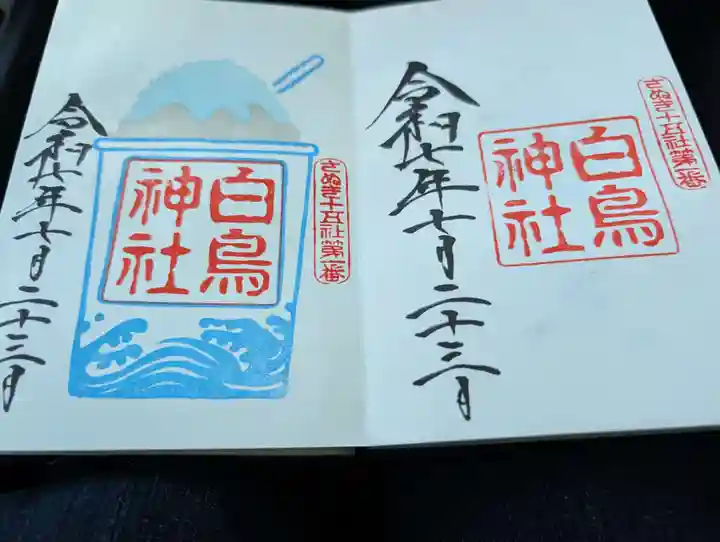 さぬき十五社第一番
白鳥
神社
令和七年七月二十三日
さぬき十五社第一番
白鳥
神社
令和七年七月二十三日